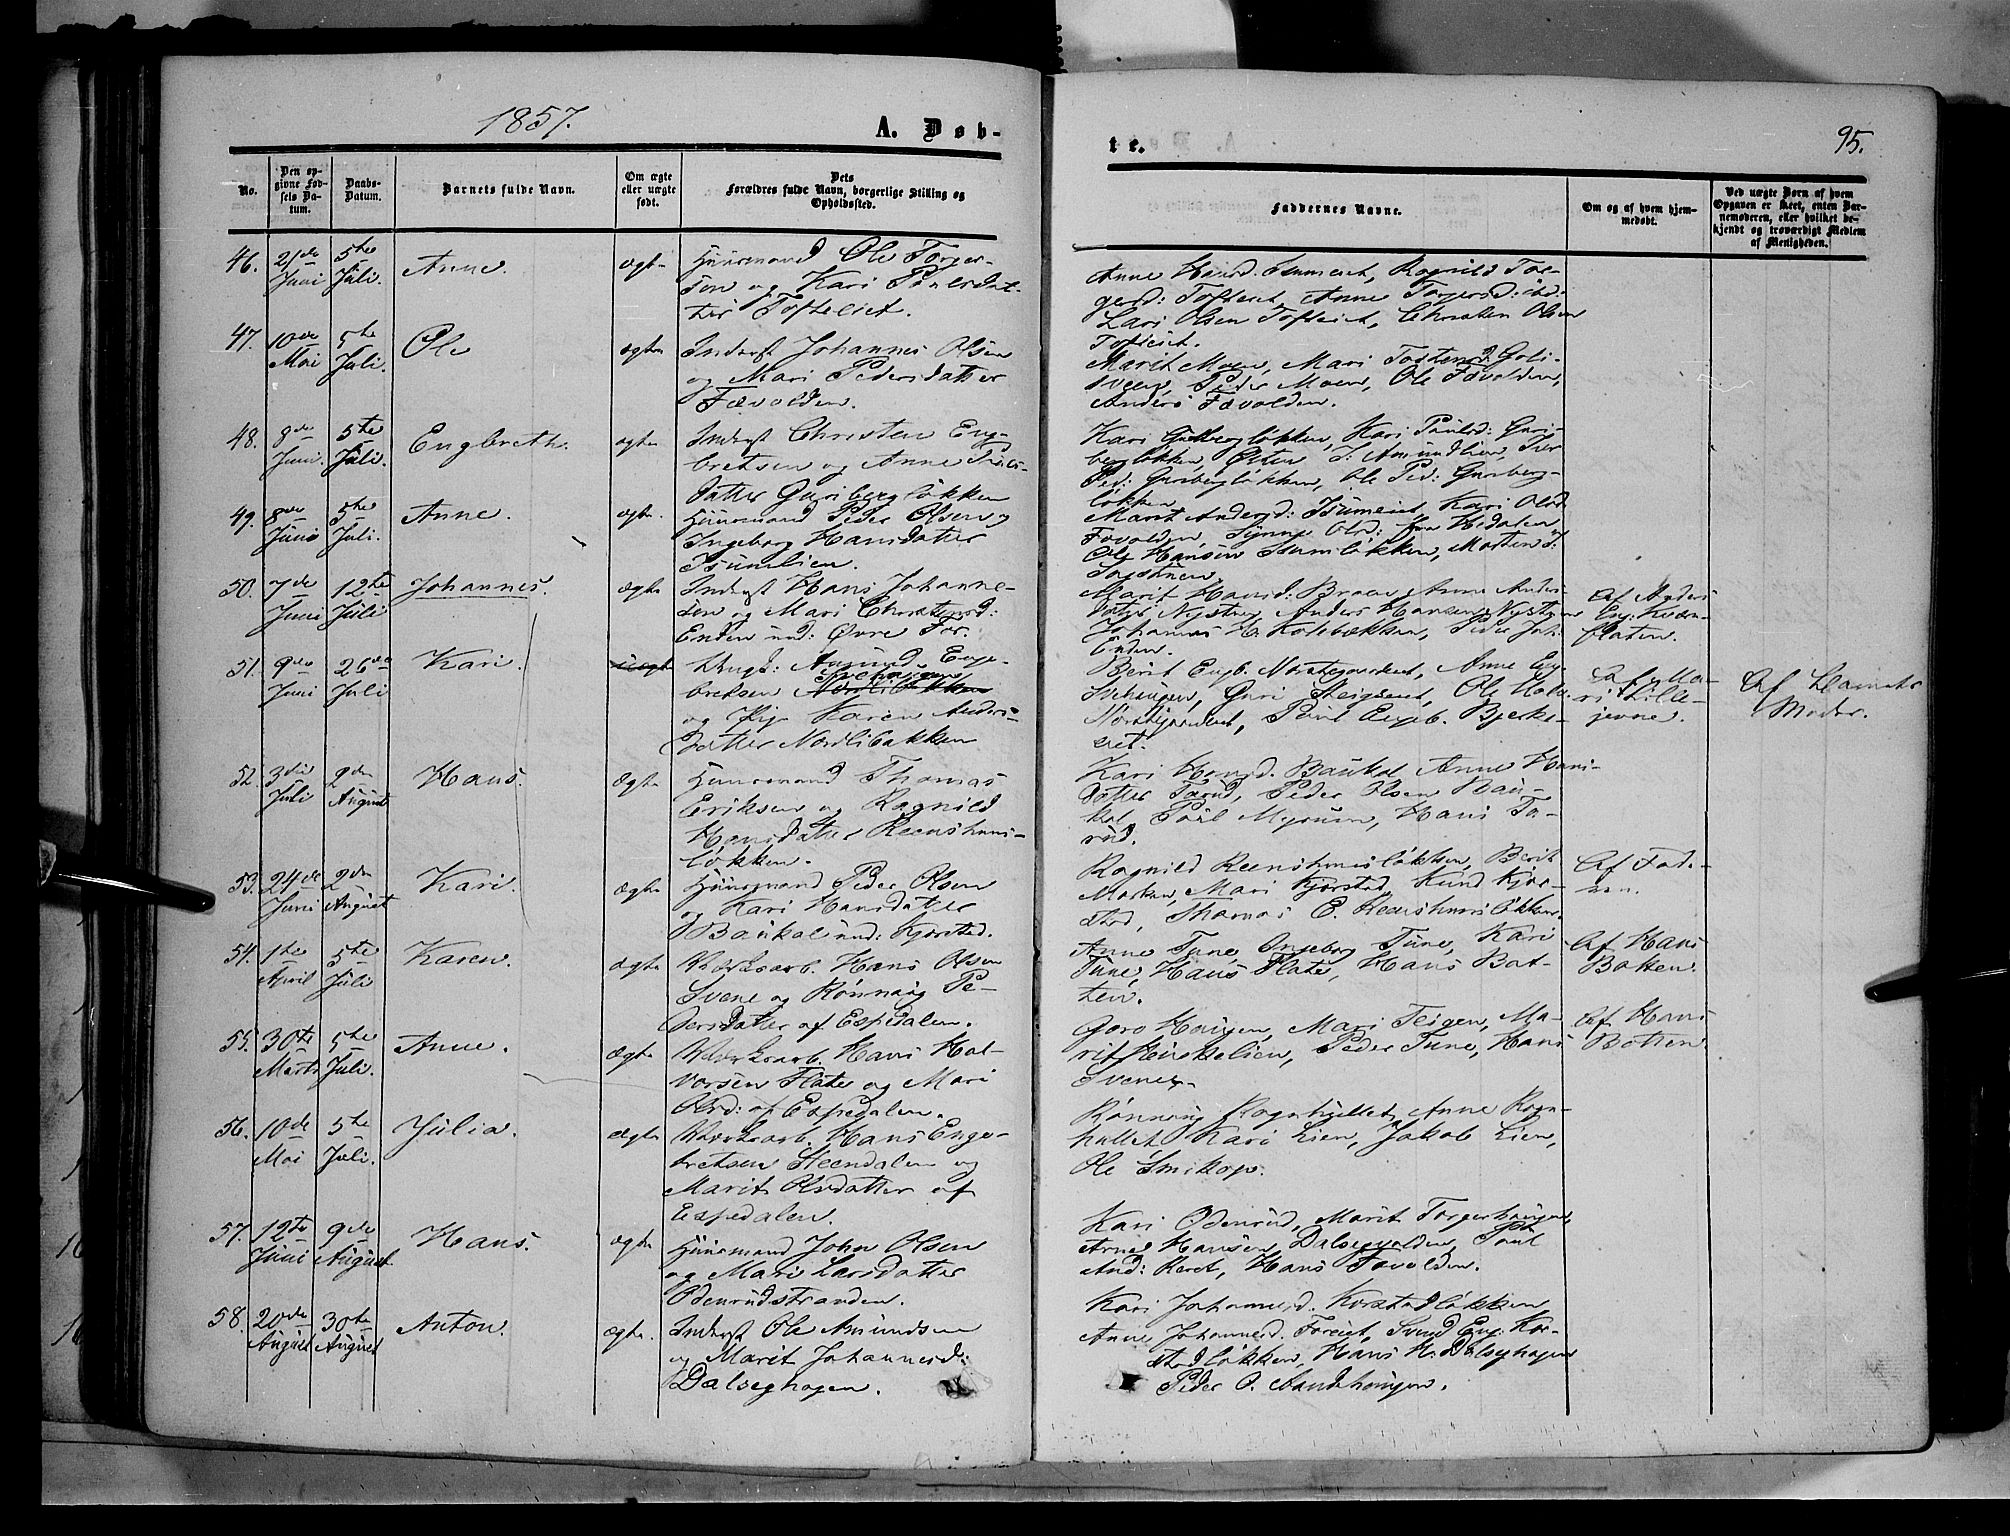 1857.
A. Døb-
te.
95.
No.
Den op-
givne Fød-
sels Da-
tum.
Daabs-
Datum.
Barnets fulde Navn.
Om ægte
eller uægte
født.
Dets
Forældres fulde Navn, borgerlige Stilling og
Opholdssted.
Faddernes Navne.
Om og af hvem hjem-
medøbt.
Ved uægte Børn af hvem
Opgaven er skeet, enten Bar-
nemoderen, eller hvilket be-
kjendt og troværdigt Medlem
af Menigheden.
46. 21de Juni 5te Juli. Anne. ægte
Huusmand Ole Torger-
sen og Kari Paulsdat-
ter Tofteliet.
Anne Torgersd:
Lari Olsen Tofteiet, Christen Olsen
Tofteiet.
47. 10de Mai 5te Juli. Ole ægte
Inderst Johannes Olsen
og Mari Pedersdatter
Fævolden.
Marit Moen, Mari
Peder Moen, Ole Fævolden,
Anders Fævolden.
48. 8de Juni. 5te Juli. Engbreth. ægte
Inderst Christen Eng-
bretsen og Anne
datter Guribergløkken
Kari Guribergløkken, Kari Paulsd: Guri-
bergløkken, Østen
Ped: Guribergløkken, Ole Ped: Guriberg-
løkken.
49. 8de Juni 5te Juli. Anne. ægte.
Huusmand Peder Olsen og
Ingeborg Hansdatter
Isumlien.
Marit Andersd: Isumeiet, Kari Olsd
Fævolden, Synne Olsd:
Ole Hansen Isumløkken, Morten
50. 7de Juni 12te Juli Johannes. ægte
Inderst Hans Johanne-
sen og Mari Christensd:
Enden und: Øvre For.
Marit Hansd: Braae, Anne Anders-
datter Nystuen, Anders Hansen Nystuen
Johannes H. Kolebækken, Peder Joh.
Enden.
Af Anders
Eng: Kværn-
flaten.
51. 9de Juni 26de Juli Kari. uægte
Ungk: Amund Enge-
bretsen
og Pige Karen Anders-
datter Nordlibakken
Berit Engb. Nørstegaardeiet, Anne Eng.
Guri Steigseiet, Ole Halv.
Nørstegaardeiet, Paul Engeb. Bjerke-
eiet.
Af Ma-
ri Lille-
jevne.
Af Barnets
Moder.
52. 3die Juli 2den August Hans. Ægte
Huusmand Thomas
Eriksen og Ragnild
Hansdatter Reenshuus-
løkken.
Kari Hansd. Baukol Anne Hans-
datter Forud, Peder Olsen Bau-
kol, Poul Myrum, Hans Fo-
rud.
53. 24de Juni 2den August Kari. Ægte
Huusmand Peder Olsen
og Kari Hansdatter
Baukol und: Kjorstad.
Ragnild Reenshuusløkken, Berit
Morken, Mari Kjorstad, Knud Kjor-
stad, Thomas E. Reenshuusløkken.
Af Fade-
ren.
54. 1ste April 5te Juli Karen. Ægte
Værksarb. Hans Olsen
Svene og Rønnaug Pe-
dersdatter af Espedalen.
Anne Tune, Ingeborg Tune, Kari
Tune, Hans Flate, Hans Bot-
ten.
Af Hans
Botten.
55. 30te Marts 5te Juli. Anne. Ægte
Værksarb. Hans Hal-
vorsen Flate og Mari
Olsd: af Espedalen.
Goro Haugen, Mari Teigen, Ma-
rit Peder Tune, Hans
Svenes.
Af Hans
Botten.
56. 10de Mai 5te Juli. Julia. Ægte
Værksarb. Hans Enge-
bretsen Steendalen og
Marit Olsdatter af
Espedalen.
Rønnaug Rognhullet, Anne Rogn-
hullet Kari Lien, Jakob Lien,
Ole Smikop.
57. 12te Juni 9de August Hans. Ægte
Huusmand John Olsen
og Mari Larsdatter
Odenrudstranden.
Kari Odenrud, Marit Torgerhaugen,
Arne Hansen Dalsegvolden, Paul
And: Reret, Hans Fævolden.
58. 20de August 30te August Anton. Ægte.
Inderst Ole Amundsen
og Marit Johannesd:
Dalseghagen.
Kari Johannesd. Korstadløkken
Anne Johannesd. Foreiet, Svend Eng: Kor-
stadløkken, Hans H. Dalseghagen
Peder O. Aandshaugen.